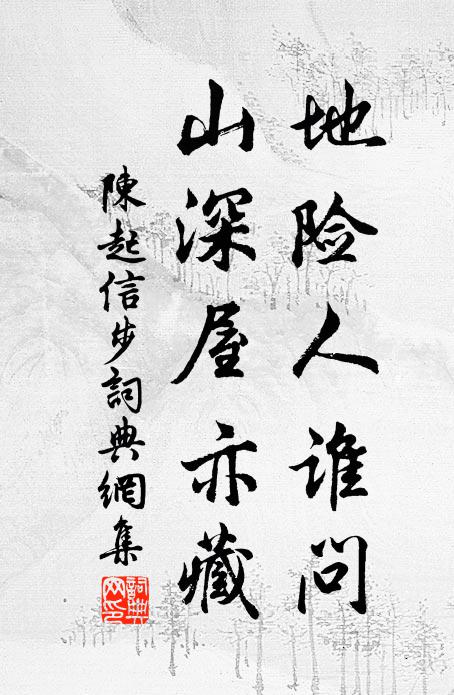 地险人谁问
山深屋亦藏
陳起信步詞典網集
詞典網印